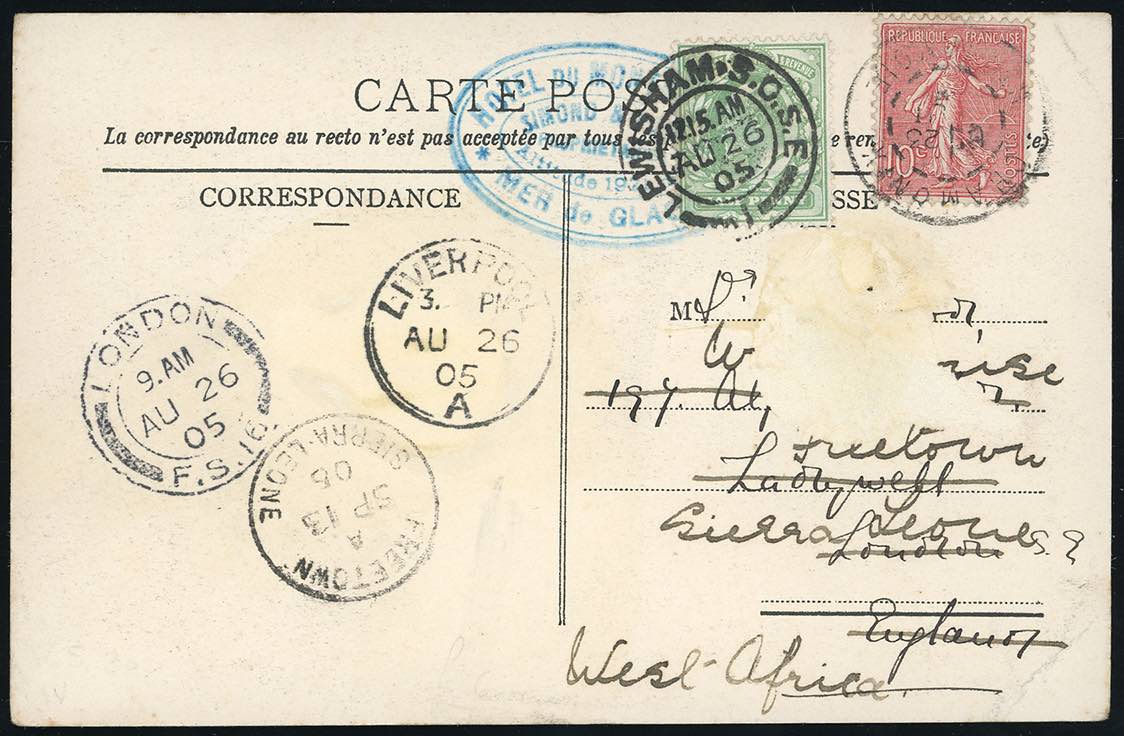 CARTE POS
La correspondance au recto n'est pas acceptée par tous les p
CORRESPONDANCE
SSE
HOTEL DU MON
SIMOND
MER de GLA
LEWISHAM. S.O. S.E
12.15. AM
AU 26
05
REVENUE
REPUBLIQUE FRANÇAISE
10c
POSTES
LIVERPOOL
3. PM
AU 26
05
A
LONDON
9. AM
AU 26
05
F.S. 91
FREETOWN
SIERRA-LEONE
A
SP 13
05
M
W
197.
Freetown
Ladywell
Sierra Leone
London S.E
England
West Africa